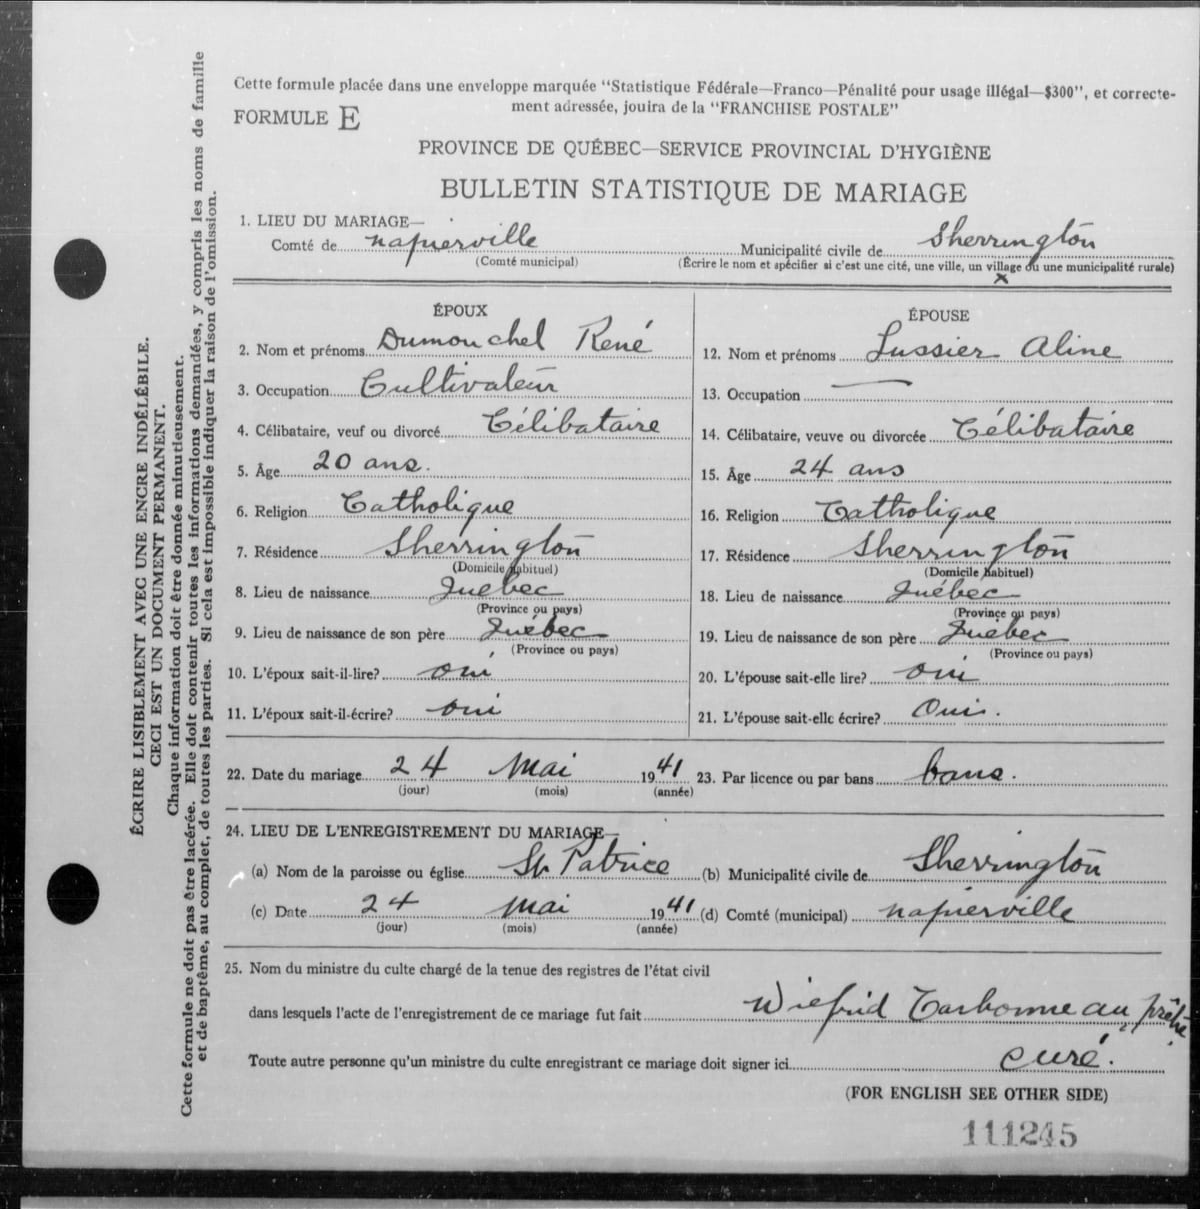 Cette formule placée dans une enveloppe marquée "Statistique Fédérale—Franco—Pénalité pour usage illégal—$300", et correcte-
ment adressée, jouira de la "FRANCHISE POSTALE"
FORMULE E
PROVINCE DE QUÉBEC—SERVICE PROVINCIAL D'HYGIÈNE
BULLETIN STATISTIQUE DE MARIAGE
1. LIEU DU MARIAGE—
Comté de napierville Municipalité civile de Sherrington
(Comté municipal) (Écrire le nom et spécifier si c'est une cité, une ville, un village ou une municipalité rurale)
x
ÉPOUX
2. Nom et prénoms Dumouchel René
3. Occupation Cultivateur
4. Célibataire, veuf ou divorcé Célibataire
5. Âge 20 ans.
6. Religion Catholique
7. Résidence Sherrington
(Domicile habituel)
8. Lieu de naissance Québec
(Province ou pays)
9. Lieu de naissance de son père Québec
(Province ou pays)
10. L'époux sait-il-lire? oui
11. L'époux sait-il-écrire? oui
ÉPOUSE
12. Nom et prénoms Lussier Aline
13. Occupation —
14. Célibataire, veuve ou divorcée Célibataire
15. Âge 24 ans
16. Religion Catholique
17. Résidence Sherrington
(Domicile habituel)
18. Lieu de naissance Québec
(Province ou pays)
19. Lieu de naissance de son père Québec
(Province ou pays)
20. L'épouse sait-elle lire? oui
21. L'épouse sait-elle écrire? Oui.
22. Date du mariage 24 Mai 1941 23. Par licence ou par bans bans.
(jour) (mois) (année)
24. LIEU DE L'ENREGISTREMENT DU MARIAGE—
(a) Nom de la paroisse ou église St Patrice (b) Municipalité civile de Sherrington
(c) Date 24 Mai 1941 (d) Comté (municipal) napierville
(jour) (mois) (année)
25. Nom du ministre du culte chargé de la tenue des registres de l'état civil
dans lesquels l'acte de l'enregistrement de ce mariage fut fait Wilfrid Carbonneau, prêtre
Toute autre personne qu'un ministre du culte enregistrant ce mariage doit signer ici curé.
(FOR ENGLISH SEE OTHER SIDE)
111245
ÉCRIRE LISIBLEMENT AVEC UNE ENCRE INDÉLÉBILE.
CECI EST UN DOCUMENT PERMANENT.
Chaque information doit être donnée minutieusement.
Cette formule ne doit pas être lacérée. Elle doit contenir toutes les informations demandées, y compris les noms de famille
et de baptême, au complet, de toutes les parties. Si cela est impossible indiquer la raison de l'omission.